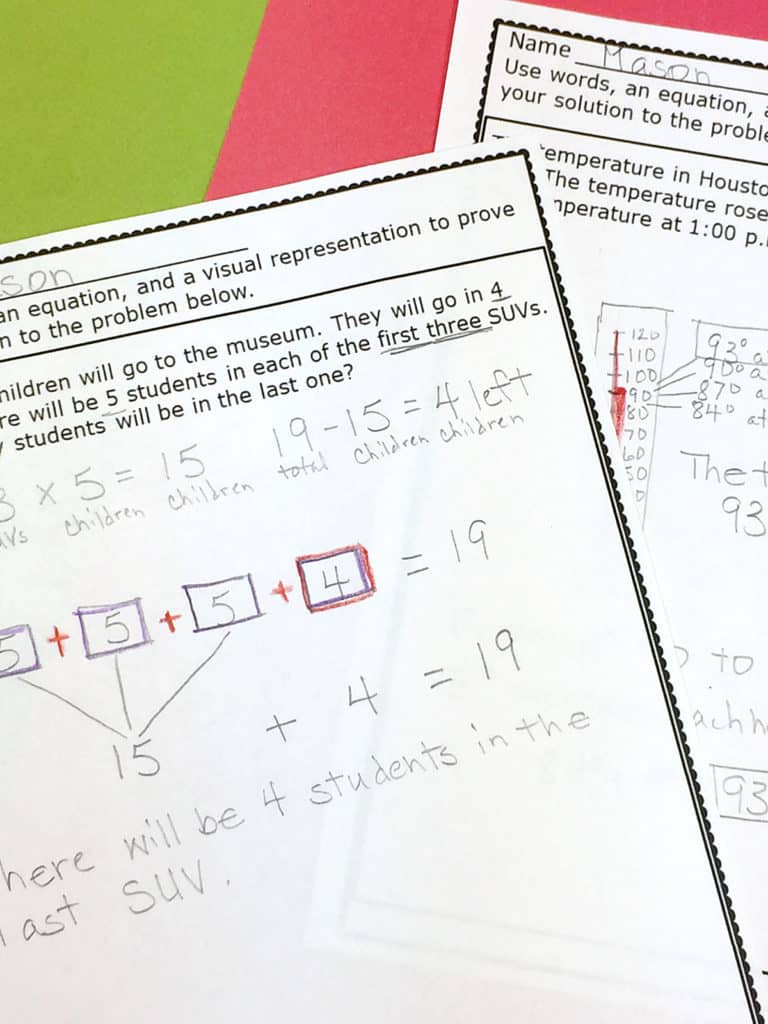 son
an equation, and a visual representation to prove
to the problem below.
hildren will go to the museum. They will go in 4
re will be 5 students in each of the first three SUVs.
students will be in the last one?
3 x 5 = 15
children children
19 - 15 = 4 left
total children children
5 + 5 + 5 + 4 = 19
15 + 4 = 19
here will be 4 students in the
last SUV.
Name Mason
Use words, an equation,
your solution to the proble
emperature in Housto
The temperature rose
perature at 1:00 p.
120
110
100
90
80
70
60
50
93° a
90° a
87° a
84° at
The t
93
to
ach h
93